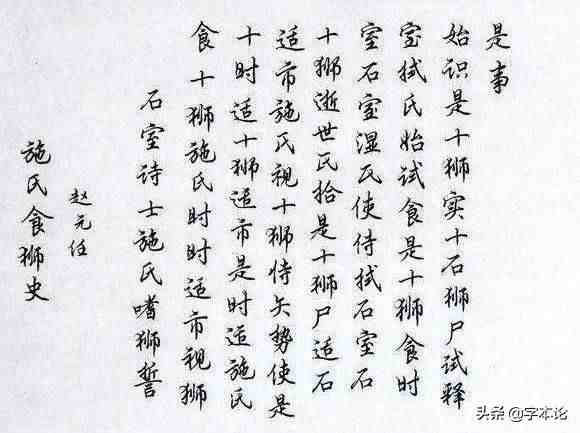 施氏食狮史
赵元任
石室诗士施氏嗜狮誓
食十狮施氏时时适市视狮
十时适十狮适市是时适施氏
适市施氏视十狮恃矢势使是
十狮逝世氏拾是十狮尸适石
室石室湿氏使侍拭石室石
室拭氏始试食是十狮食时
始识是十狮实十石狮尸试释
是事
头条 @字本论